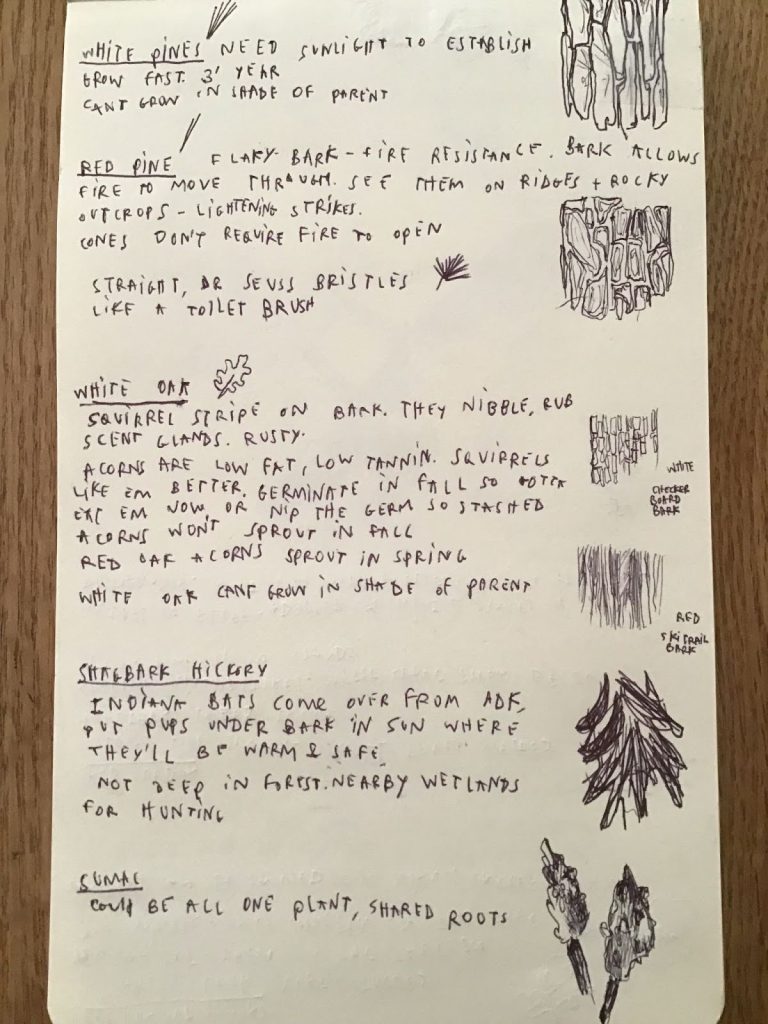 WHITE PINES NEED SUNLIGHT TO ESTABLISH
GROW FAST. 3' YEAR
CANT GROW IN SHADE OF PARENT
RED PINE FLAKY BARK - FIRE RESISTANCE. BARK ALLOWS
FIRE TO MOVE THROUGH. SEE THEM ON RIDGES + ROCKY
OUTCROPS - LIGHTENING STRIKES.
CONES DON'T REQUIRE FIRE TO OPEN
STRAIGHT, DR SEUSS BRISTLES
LIKE A TOILET BRUSH
WHITE OAK
SQUIRREL STRIPE ON BARK. THEY NIBBLE, RUB
SCENT GLANDS. RUSTY.
ACORNS ARE LOW FAT, LOW TANNIN. SQUIRRELS
LIKE EM BETTER. GERMINATE IN FALL SO GOTTA
EAT EM NOW, OR NIP THE GERM SO STASHED
ACORNS WON'T SPROUT IN FALL
RED OAK ACORNS SPROUT IN SPRING
WHITE OAK CANT GROW IN SHADE OF PARENT
WHITE
CHECKER
BOARD
BARK
RED
SKI TRAIL
BARK
SHAGBARK HICKORY
INDIANA BATS COME OVER FROM ADK,
PUT PUPS UNDER BARK IN SUN WHERE
THEY'LL BE WARM & SAFE.
NOT DEEP IN FOREST. NEARBY WETLANDS
FOR HUNTING
SUMAC
COULD BE ALL ONE PLANT, SHARED ROOTS